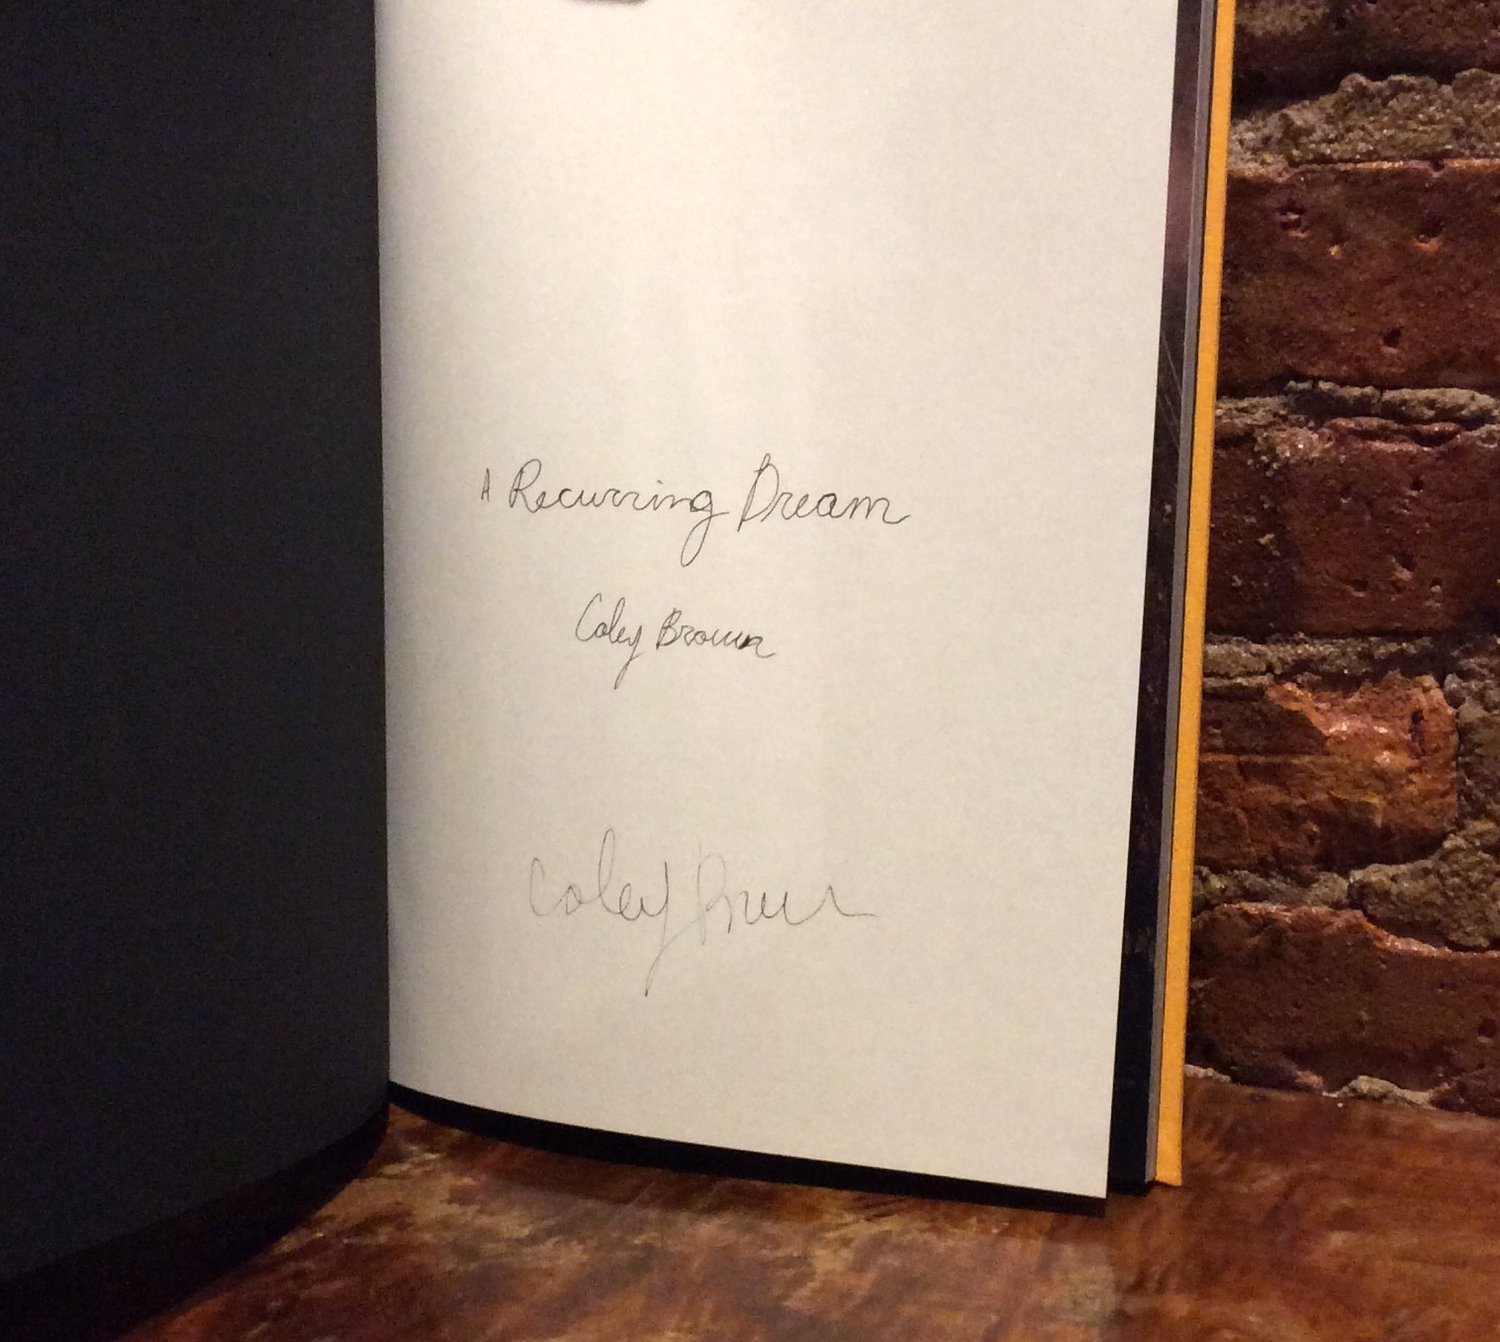 A Recurring Dream
Coley Brown
Coley Brown